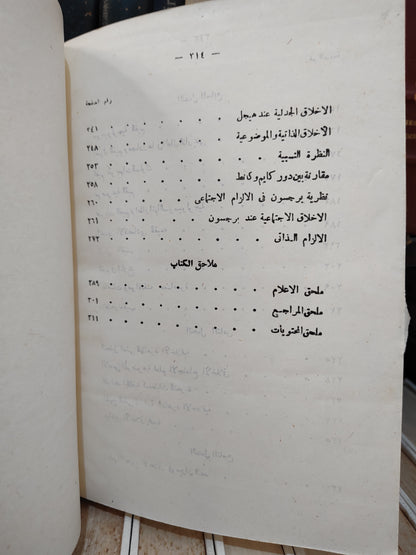 — ٣١٤ —
رقم الصفحة
الاخلاق الجدلية عند هيجل . . . . . . . ٢٤١
الأخلاق الذاتية والموضوعية . . . . . . . ٢٤٨
النظرة النسبية . . . . . . . . . ٢٥٣
مقارنة بين دور كايم وكانط . . . . . . . ٢٥٨
نظرية برجسون في الالزام الاجتماعي . . . . . ٢٦٠
الاخلاق الاجتماعية عند برجسون . . . . . . ٢٦١
الالزام الذاتي . . . . . . . . . ٢٧٢
ملاحق الكتاب
ملحق الاعلام . . . . . . . . . ٢٨٩
ملحق المراجع . . . . . . . . . ٣٠١
ملحق المحتويات . . . . . . . . ٣١١